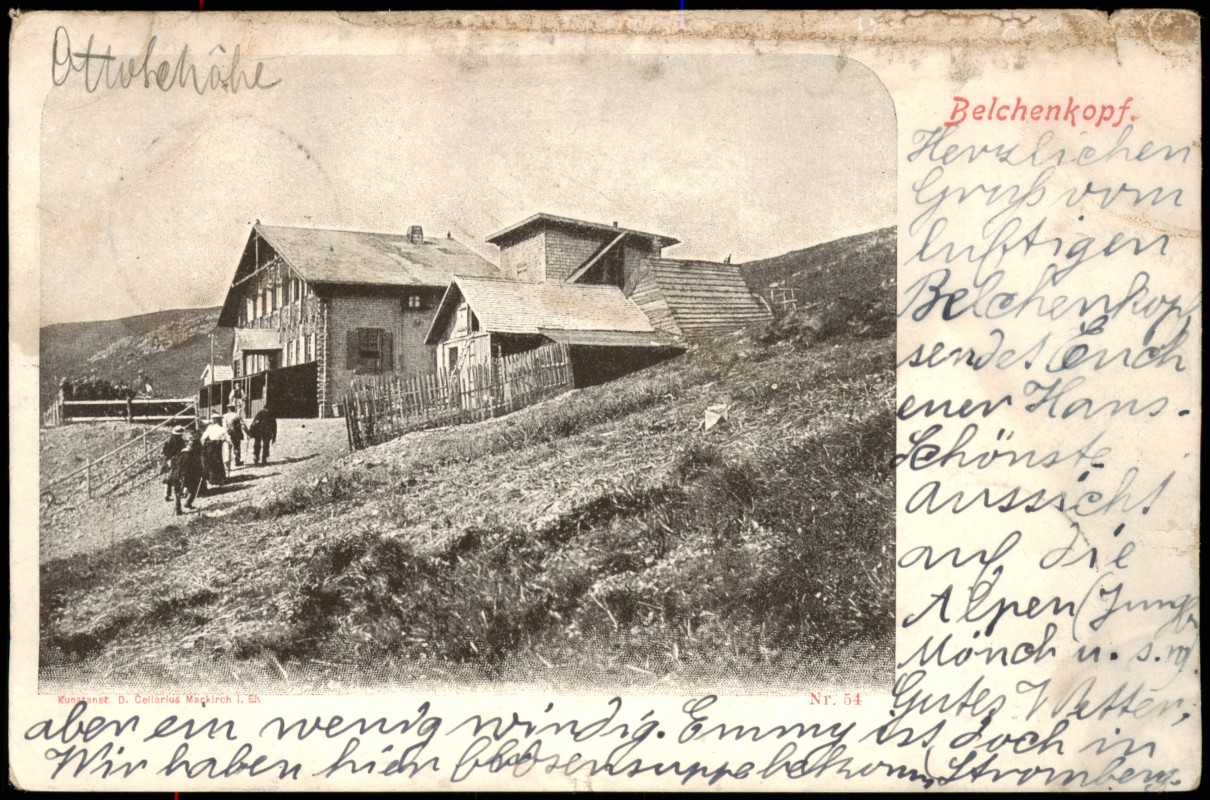 Ottohöhe
Belchenkopf.
Herzlichen
Gruß vom
luftigen
Belchenkopf
sendet Euch
euer Hans.
Schönste
Aussicht
auf die
Alpen (Jungfr
Mönch u. s. w.
Gutes Wetter,
Kunstanst. D. Cellarius Markirch i. Els.
Nr. 54
aber ein wenig windig. Emmy ist doch in
Wir haben hier Erbsensuppe bekomm. Stromberg.